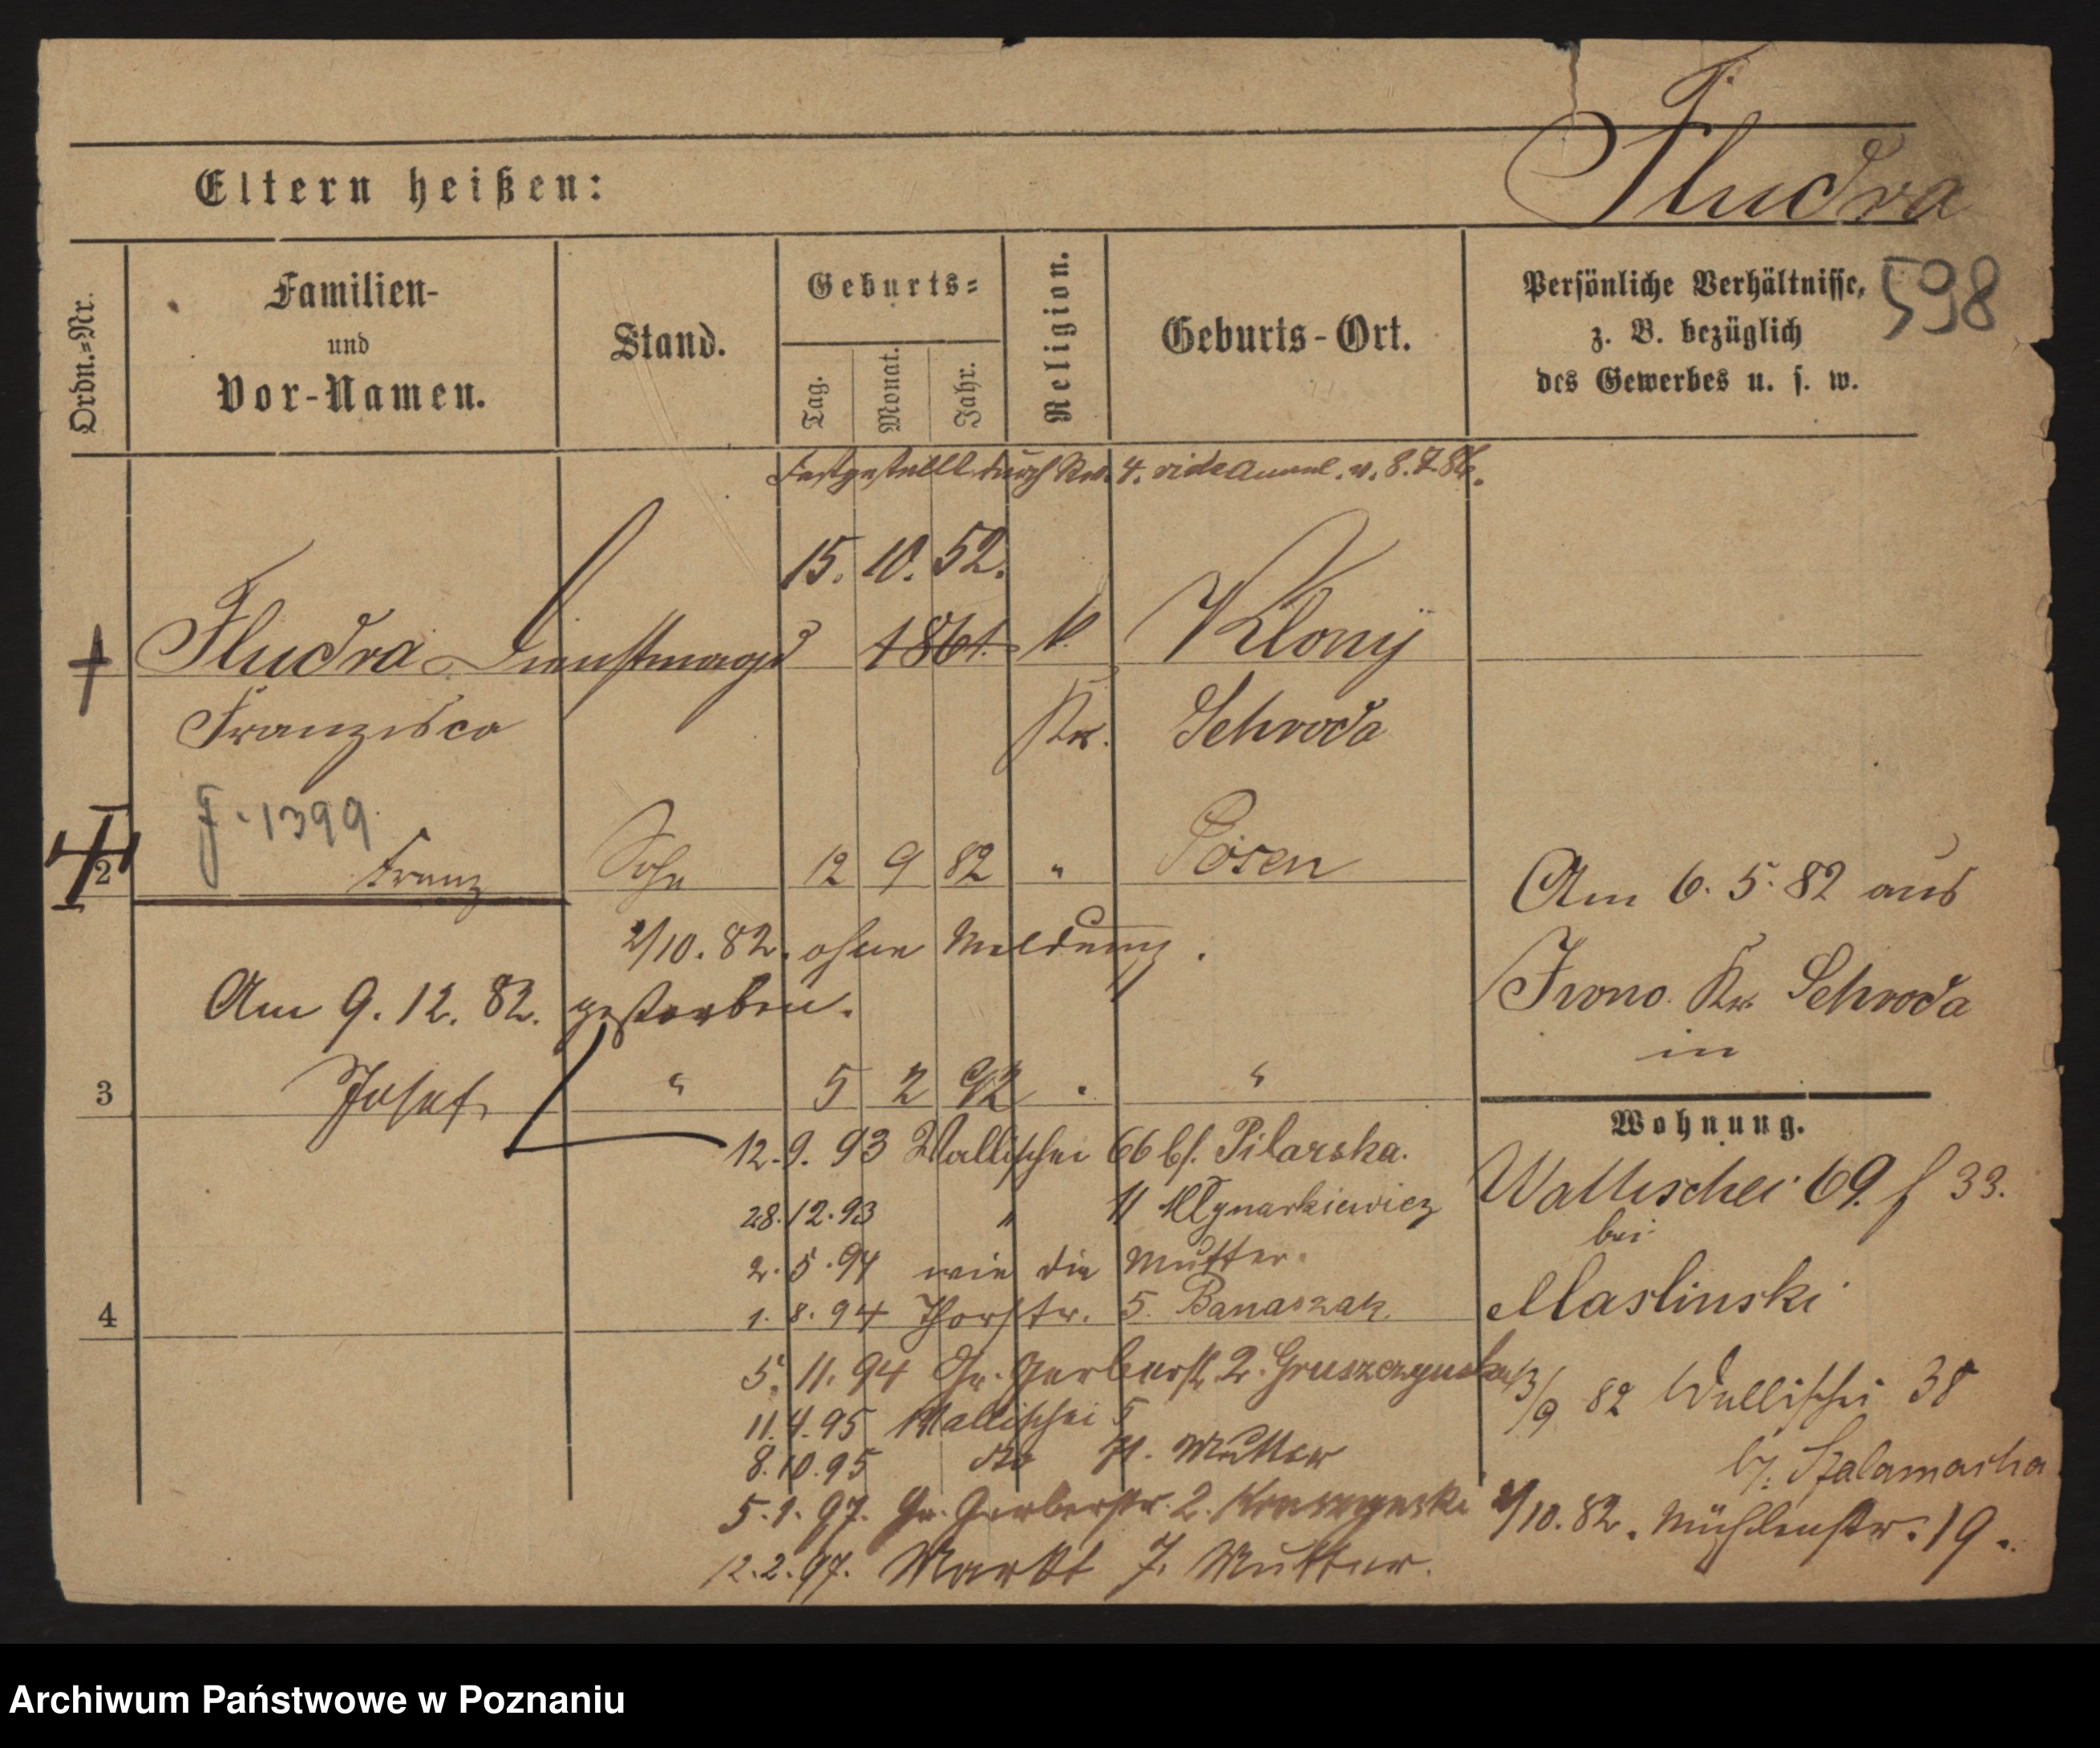 Fludra
Eltern heißen:
598
Ordn.=Nr.
Familien-
und
Vor-Namen.
Stand.
Geburts=
Tag.
Monat.
Jahr.
Religion.
Geburts-Ort.
Persönliche Verhältnisse,
z. B. bezüglich
des Gewerbes u. s. w.
Festgestellt durch Rev. 4. vide v. 8.7.86.
15. 10. 52.
Fludra Dienstmagd 1861. k. Klony
Franzisca Kr. Schroda
F. 1399
2 Franz Sohn 12 9 82 " Posen
2/10. 82. ohne Meldung.
Am 9. 12. 82. gestorben.
Am 6. 5. 82 aus
Iwno Kr. Schroda
in
3 Josef " 5 2 92 " "
Wohnung.
Wallischei 69. f 33.
bei
Maslinski
13/9 82 Wallischei 38
b/. Szalamacha
2/10. 82. Mühlenstr. 19.
12. 9. 93 Wallischei 66 b/. Pilarska.
28. 12. 93 " 11 Mlynarkiewicz
2. 5. 94 wie die Mutter.
4
1. 8. 94 Thorstr. 5. Banaszak
5. 11. 94 Gr. Gerberstr. 2. Gruszczynska
11. 4. 95 Wallischei 5
8. 10. 95 dto 71. Mutter
5. 1. 97. Gr. Gerberstr. 2.
12. 2. 97. Markt 7. Mutter.
Archiwum Państwowe w Poznaniu